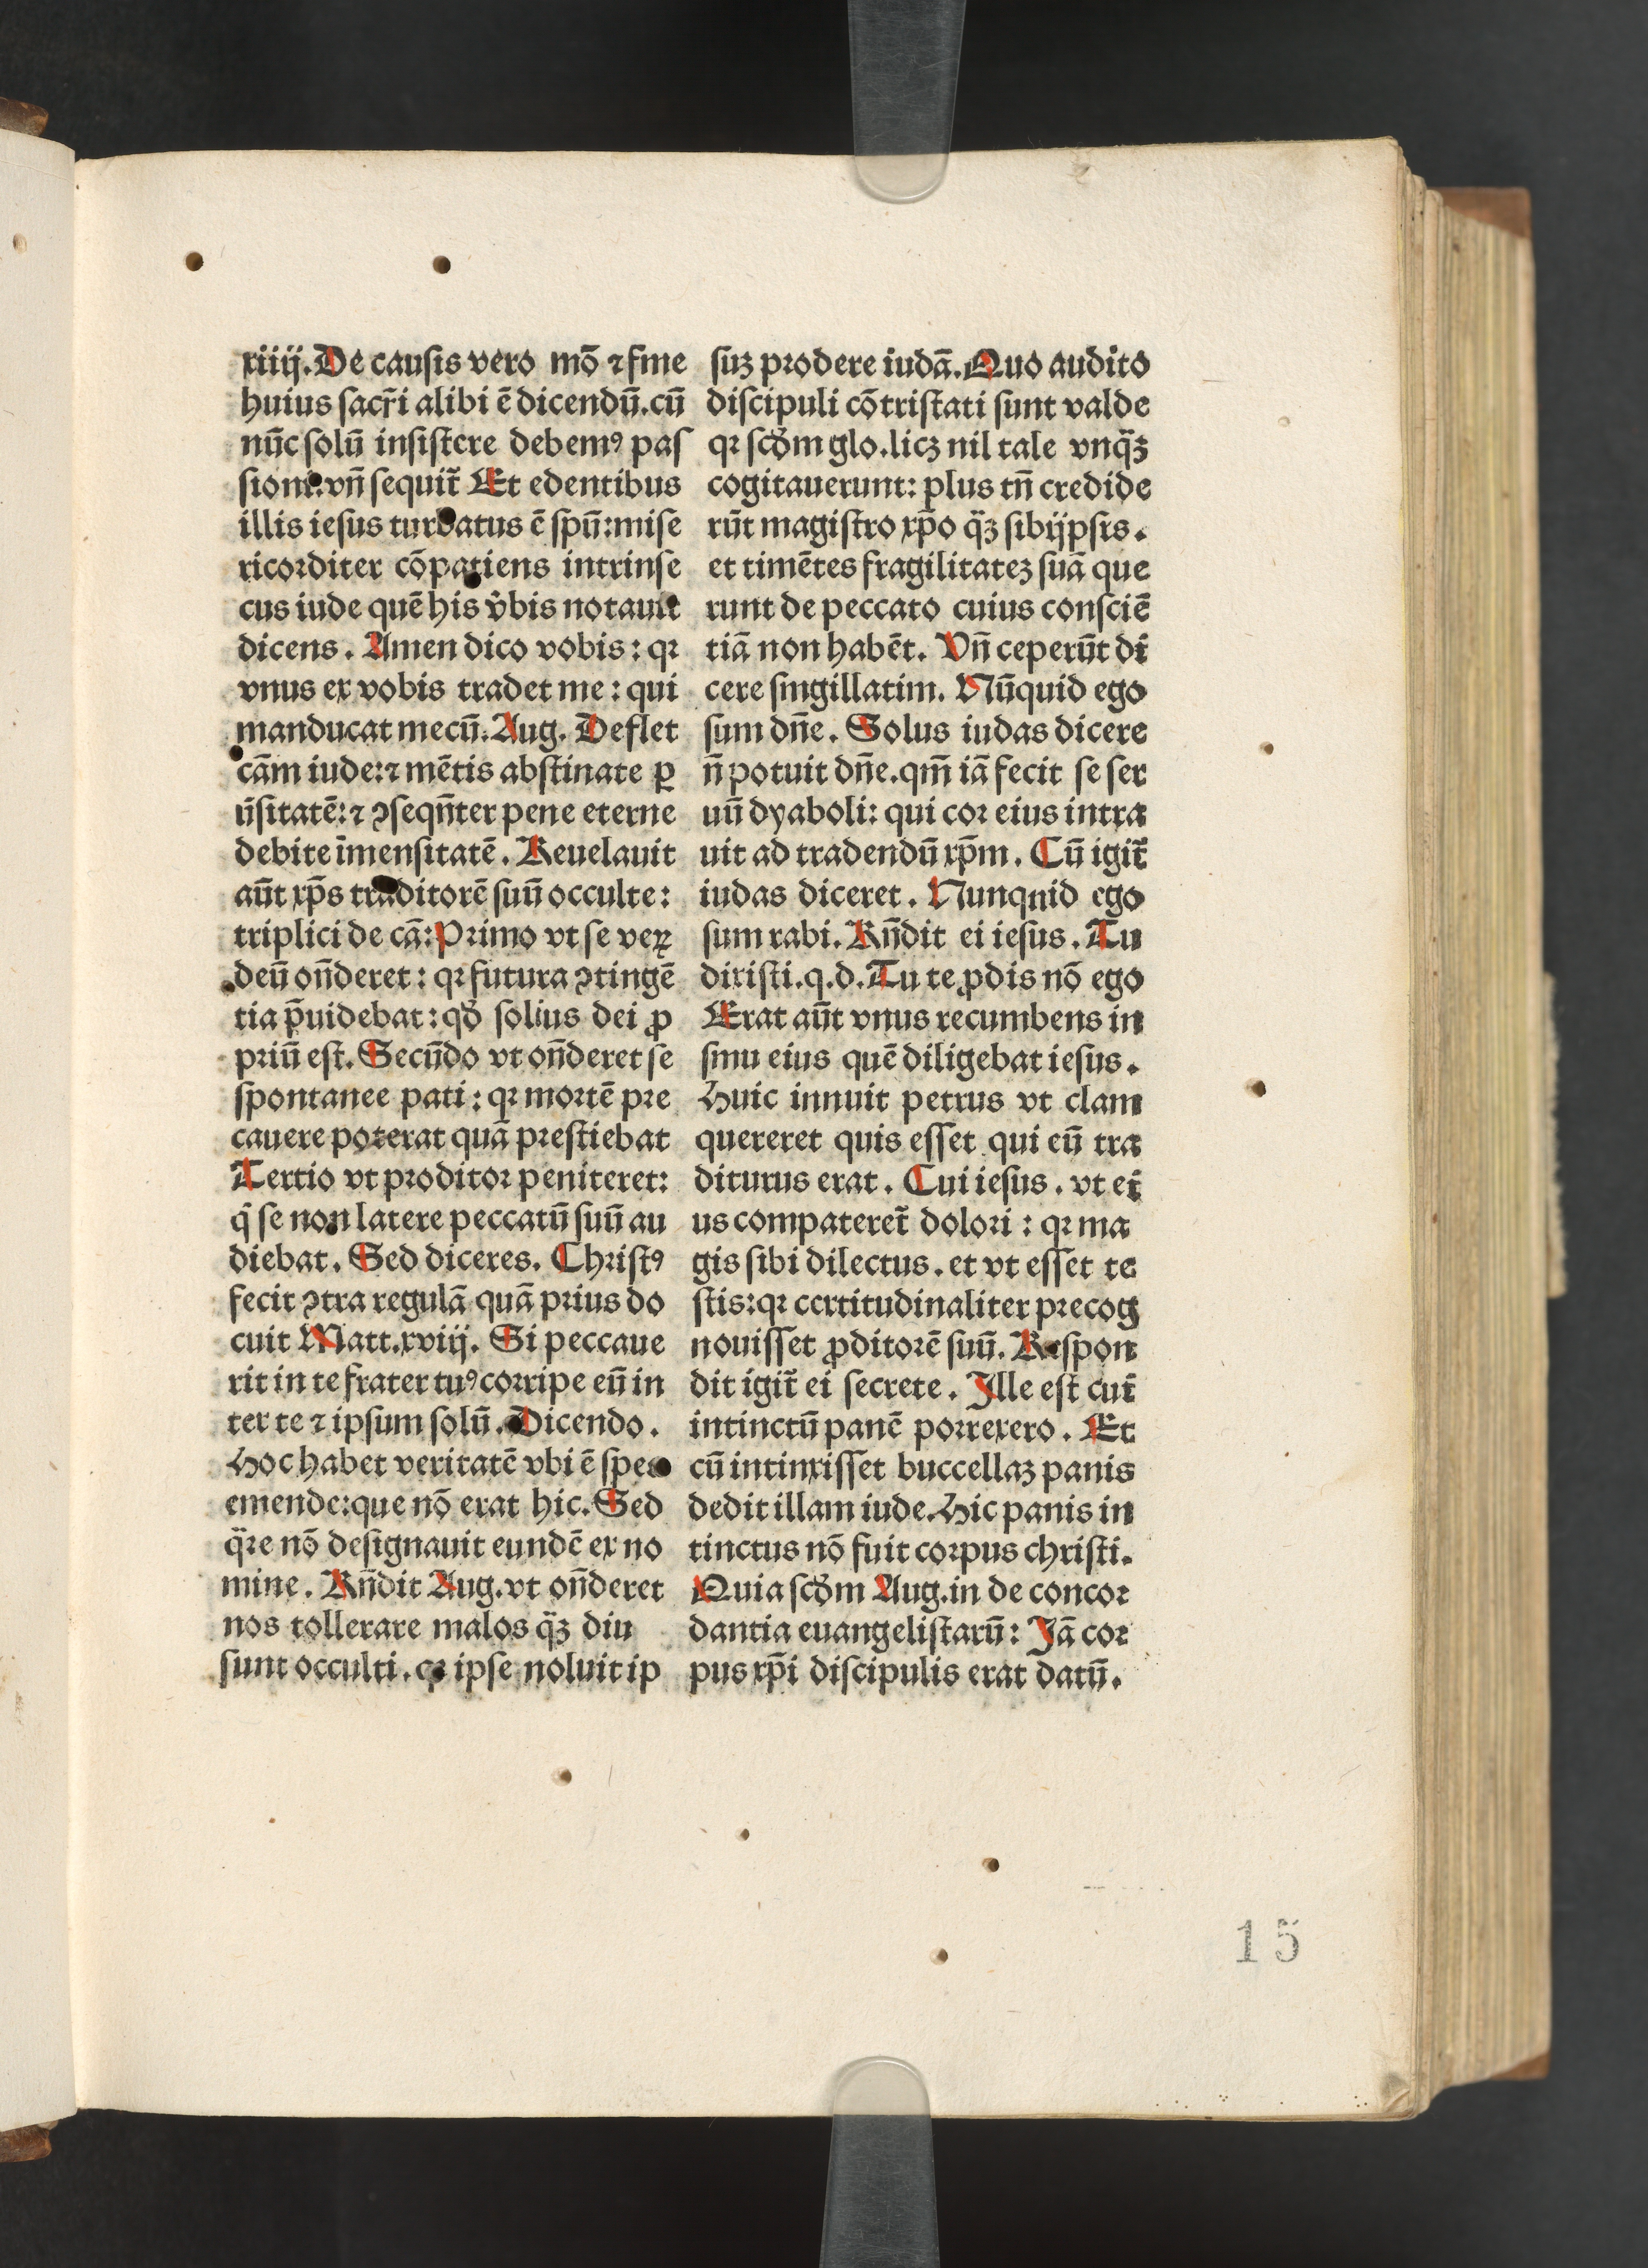 xiiij. De causis vero mō ⁊ fine
huius sacr̄i alibi ē dicendū. cū
nūc solū insistere debemꝰ pas
sioni. vn̄ sequit̄ Et edentibus
illis iesus turbatus ē spū: mise
ricorditer cōpatiens intrinse
cus iude quē his v̄bis notauit
dicens. Amen dico vobis: qꝛ
vnus ex vobis tradet me: qui
manducat mecū. Aug. Deflet
cām iude: ⁊ mētis abstinate ꝑ
ūsitatē: ⁊ ꝯseqn̄ter pene eterne
debite īmensitatē. Reuelauit
aūt xp̄s traditorē suū occulte:
triplici de cā: Primo vt se veꝝ
deū on̄deret: qꝛ futura ꝯtingē
tia p̄uidebat: qd̓ solius dei ꝓ
priū est. Secūdo vt on̄deret se
spontanee pati: qꝛ mortē pre
cauere poterat quā prestiebat
Tertio vt proditor peniteret:
q̄ se non latere peccatū suū au
diebat. Sed diceres. Christꝰ
fecit ꝯtra regulā quā prius do
cuit Matt. xviij. Si peccaue
rit in te frater tuꝰ corripe eū in
ter te ⁊ ipsum solū. Dicendo.
Hoc habet veritatē vbi ē spes
emende: que nō erat hic. Sed
q̈re nō designauit eundē ex no
mine. Rn̄dit Aug. vt on̄deret
nos tollerare malos q̈ꝫ diu
sunt occulti. qꝛ ipse noluit ip
suꝫ prodere iudā. Quo audito
discipuli cōtristati sunt valde
qꝛ scd̓m glo. licꝫ nil tale vnq̈ꝫ
cogitauerunt: plus tn̄ credide
rūt magistro xp̄o q̈ꝫ sibijpsis.
et timētes fragilitateꝫ suā que
runt de peccato cuius consciē
tiā non habēt. Vn̄ ceperūt di
cere singillatim. Nūquid ego
sum dn̄e. Solus iudas dicere
n̄ potuit dn̄e. qm̄ iā fecit se ser
uū dyaboli: qui cor eius intra
uit ad tradendū xp̄m. Cū igit̄
iudas diceret. Nunqnid ego
sum rabi. Rn̄dit ei iesus. Tu
dixisti. q. d. Tu te ꝓdis nō ego
Erat aūt vnus recumbens in
sinu eius quē diligebat iesus.
Huic innuit petrus vt clam
quereret quis esset qui eū tra
diturus erat. Cui iesus. vt ei
us compateret̄ dolori: qꝛ ma
gis sibi dilectus. et vt esset te
stis: qꝛ certitudinaliter precog
nouisset ꝓditorē suū. Respon
dit igit̄ ei secrete. Ille est cui
intinctū panē porrexero. Et
cū intinxisset buccellaꝫ panis
dedit illam iude. Hic panis in
tinctus nō fuit corpus christi.
Quia scd̓m Aug. in de concor
dantia euangelistarū: Iā cor
pus xp̄i discipulis erat datū.
15